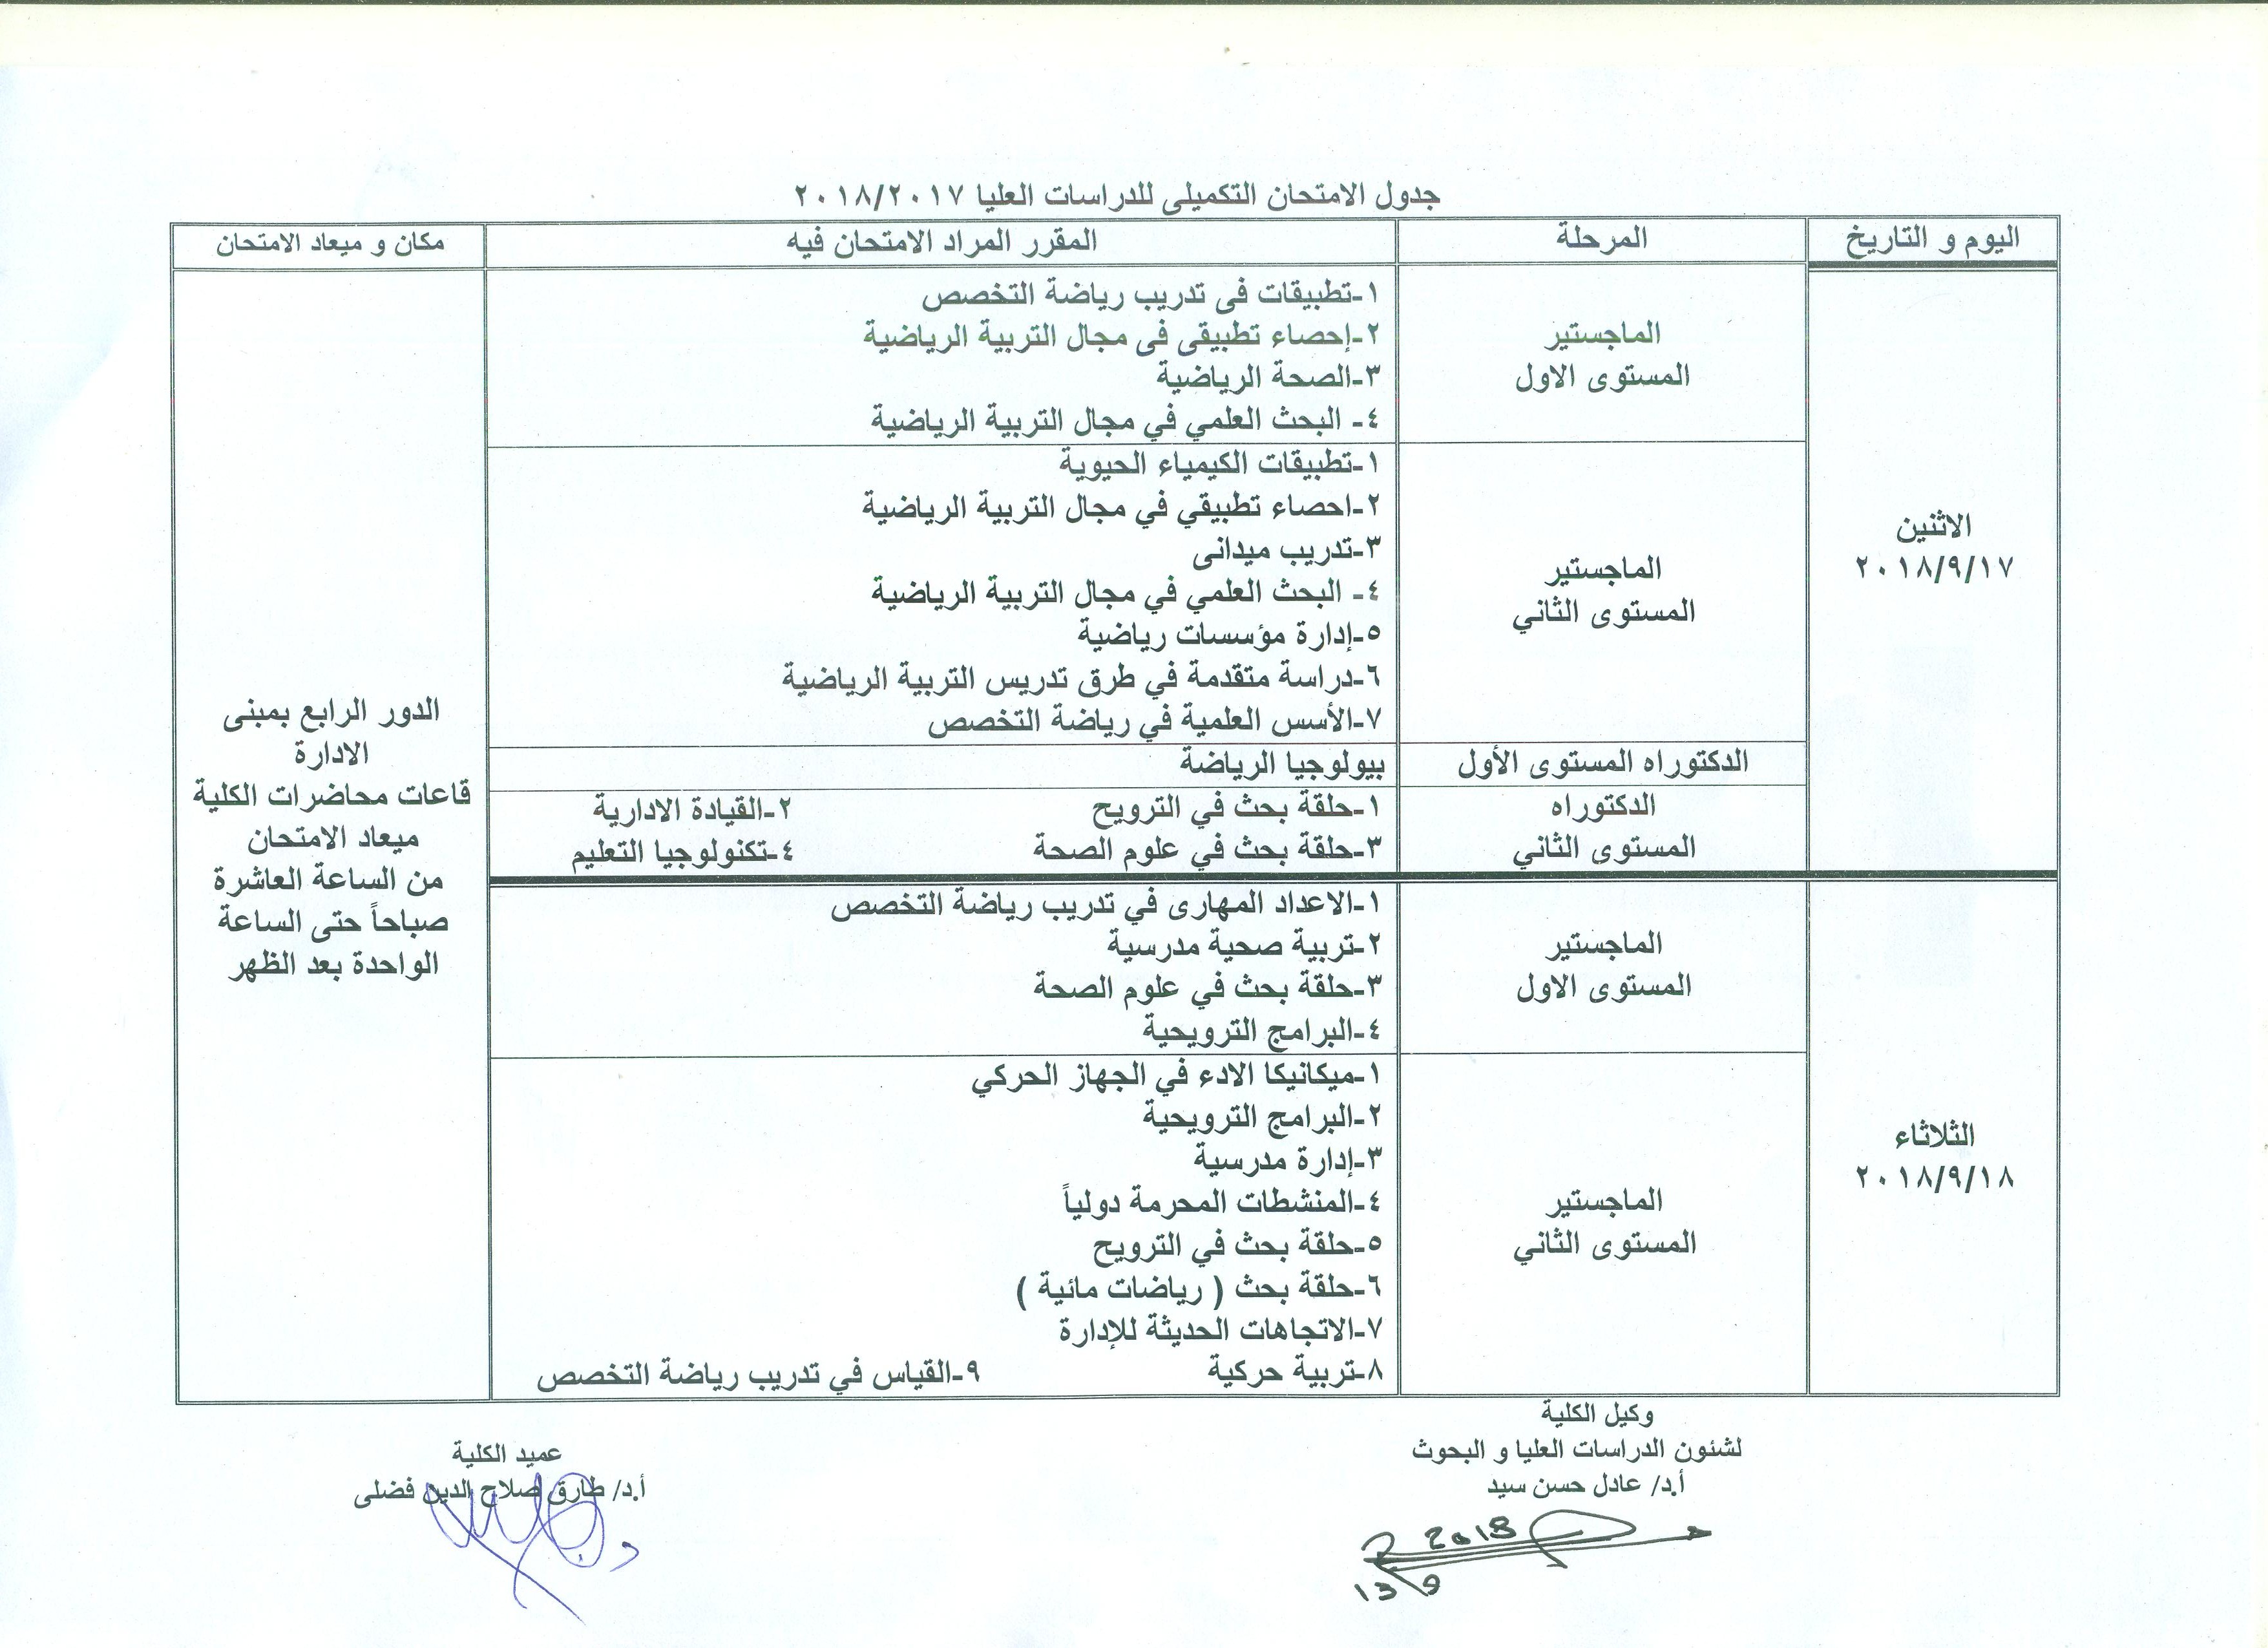 جدول الامتحان التكميلى للدراسات العليا ٢٠١٨/٢٠١٧
اليوم و التاريخ
المرحلة
المقرر المراد الامتحان فيه
مكان و ميعاد الامتحان
الاثنين
٢٠١٨/٩/١٧
الماجستير
المستوى الاول
١-تطبيقات فى تدريب رياضة التخصص
٢-إحصاء تطبيقى فى مجال التربية الرياضية
٣-الصحة الرياضية
٤- البحث العلمي في مجال التربية الرياضية
الماجستير
المستوى الثاني
١-تطبيقات الكيمياء الحيوية
٢-احصاء تطبيقي في مجال التربية الرياضية
٣-تدريب ميدانى
٤- البحث العلمي في مجال التربية الرياضية
٥-إدارة مؤسسات رياضية
٦-دراسة متقدمة في طرق تدريس التربية الرياضية
٧-الأسس العلمية في رياضة التخصص
الدكتوراه المستوى الأول
بيولوجيا الرياضة
الدكتوراه
المستوى الثاني
١-حلقة بحث في الترويح ٢-القيادة الادارية
٣-حلقة بحث في علوم الصحة ٤-تكنولوجيا التعليم
الدور الرابع بمبنى
الادارة
قاعات محاضرات الكلية
ميعاد الامتحان
من الساعة العاشرة
صباحاً حتى الساعة
الواحدة بعد الظهر
الثلاثاء
٢٠١٨/٩/١٨
الماجستير
المستوى الاول
١-الاعداد المهارى في تدريب رياضة التخصص
٢-تربية صحية مدرسية
٣-حلقة بحث في علوم الصحة
٤-البرامج الترويحية
الماجستير
المستوى الثاني
١-ميكانيكا الادء في الجهاز الحركي
٢-البرامج الترويحية
٣-إدارة مدرسية
٤-المنشطات المحرمة دولياً
٥-حلقة بحث في الترويح
٦-حلقة بحث ( رياضات مائية )
٧-الاتجاهات الحديثة للإدارة
٨-تربية حركية ٩-القياس في تدريب رياضة التخصص
وكيل الكلية
لشئون الدراسات العليا و البحوث
أ.د/ عادل حسن سيد
2018
13/9
عميد الكلية
أ.د/ طارق صلاح الدين فضلى